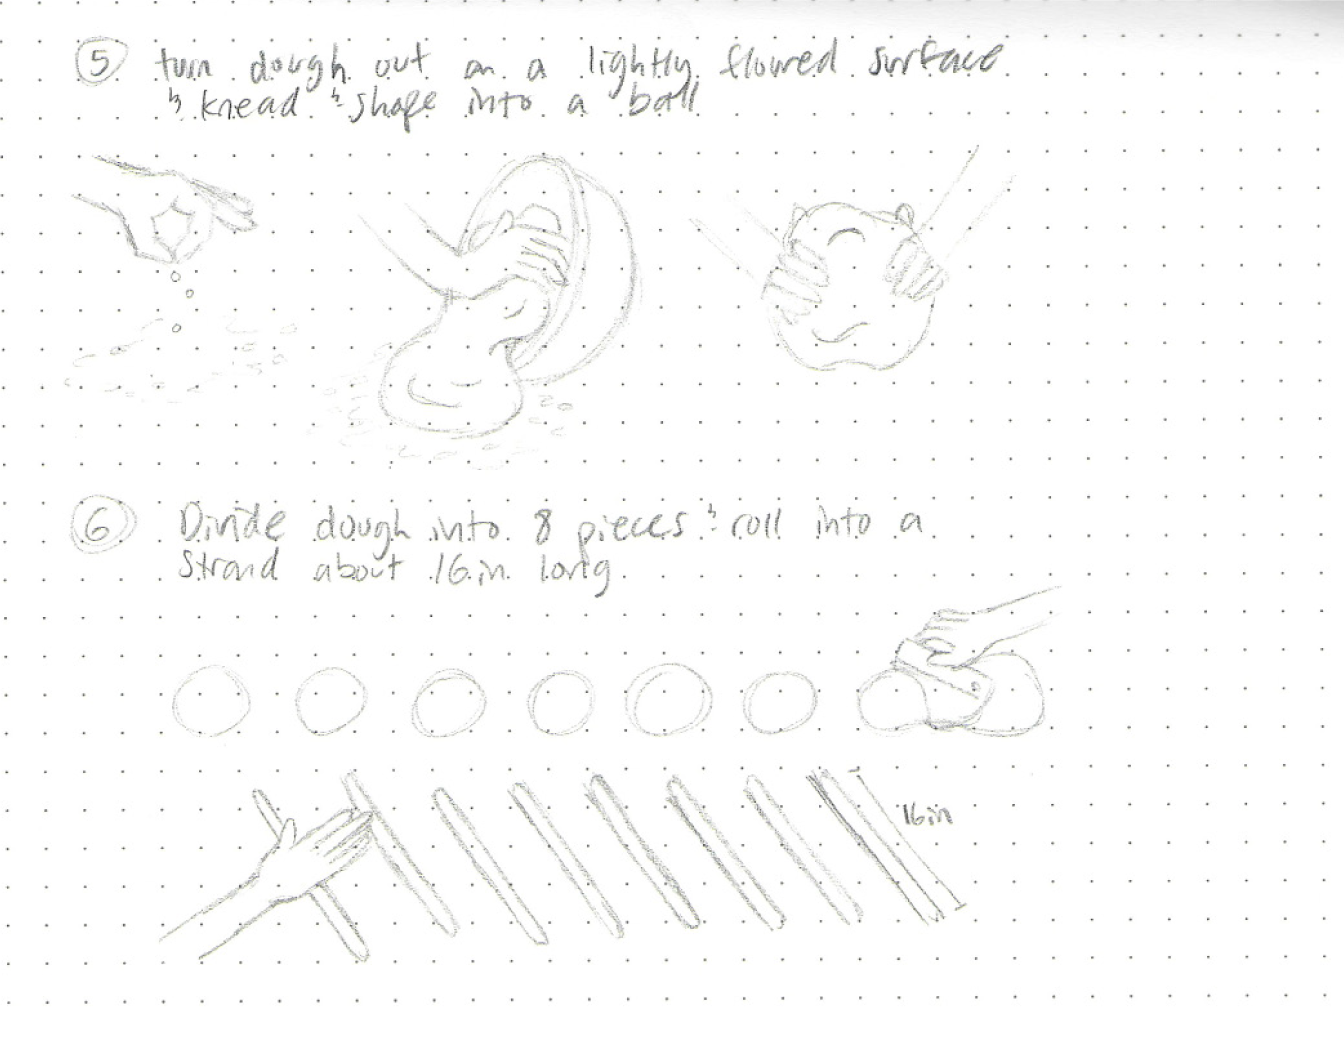 5 turn dough out on a lightly floured surface
& knead & shape into a ball
6 Divide dough into 8 pieces & roll into a
strand about 16 in long
16in